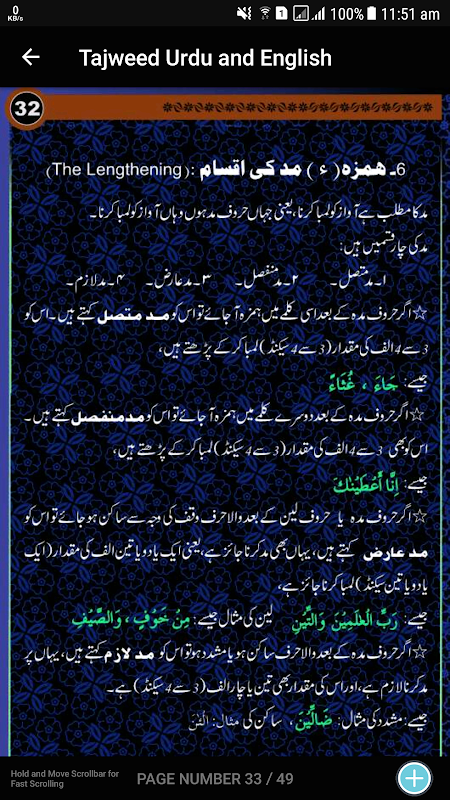 0
KB/s
1
100%
11:51 am
Tajweed Urdu and English
32
6۔ ہمزہ ( ء ) مد کی اقسام :(The Lengthening)
مد کا مطلب ہے آواز کو لمبا کرنا، یعنی جہاں حروف مدہوں وہاں آواز کو لمبا کرنا۔
مد کی چار قسمیں ہیں:
۱۔ مد متصل۔ ۲۔ مد منفصل۔ ۳۔ مد عارض۔ ۴۔ مد لازم۔
☆ اگر حروف مدہ کے بعد اسی کلمے میں ہمزہ آ جائے تو اس کو مد متصل کہتے ہیں۔ اس کو
3 سے 4 الف کی مقدار (3 سے 4 سیکنڈ) لمبا کر کے پڑھتے ہیں،
جیسے: جَاءَ ، غُثَاءً
☆ اگر حروف مدہ کے بعد دوسرے کلمے میں ہمزہ آ جائے تو اس کو مد منفصل کہتے ہیں۔
اس کو بھی 3 سے 4 الف کی مقدار (3 سے 4 سیکنڈ) لمبا کر کے پڑھتے ہیں،
جیسے: اِنَّا أَعْطَيْنٰكَ
☆ اگر حروف مدہ یا حروف لین کے بعد والا حرف وقف کی وجہ سے ساکن ہو جائے تو اس کو
مد عارض کہتے ہیں، یہاں بھی مد کرنا جائز ہے، یعنی ایک یا دو یا تین الف کی مقدار (ایک
یا دو یا تین سیکنڈ) لمبا کرنا جائز ہے،
جیسے: رَبِّ الْعٰلَمِيْنَ وَالتِّيْنِ لین کی مثال جیسے: مِنْ خَوْفٍ ، وَالصَّيْفِ
☆ اگر حروف مدہ کے بعد والا حرف ساکن ہو یا مشدد ہو تو اس کو مد لازم کہتے ہیں، یہاں پر
مد کرنا لازم ہے، اور اس کی مقدار بھی تین یا چار الف (3 سے 4 سیکنڈ) ہے۔
جیسے: مشدد کی مثال: ضَالِّيْنَ، ساکن کی مثال: آلْئٰنَ
Hold and Move Scrollbar for
Fast Scrolling
PAGE NUMBER 33 / 49